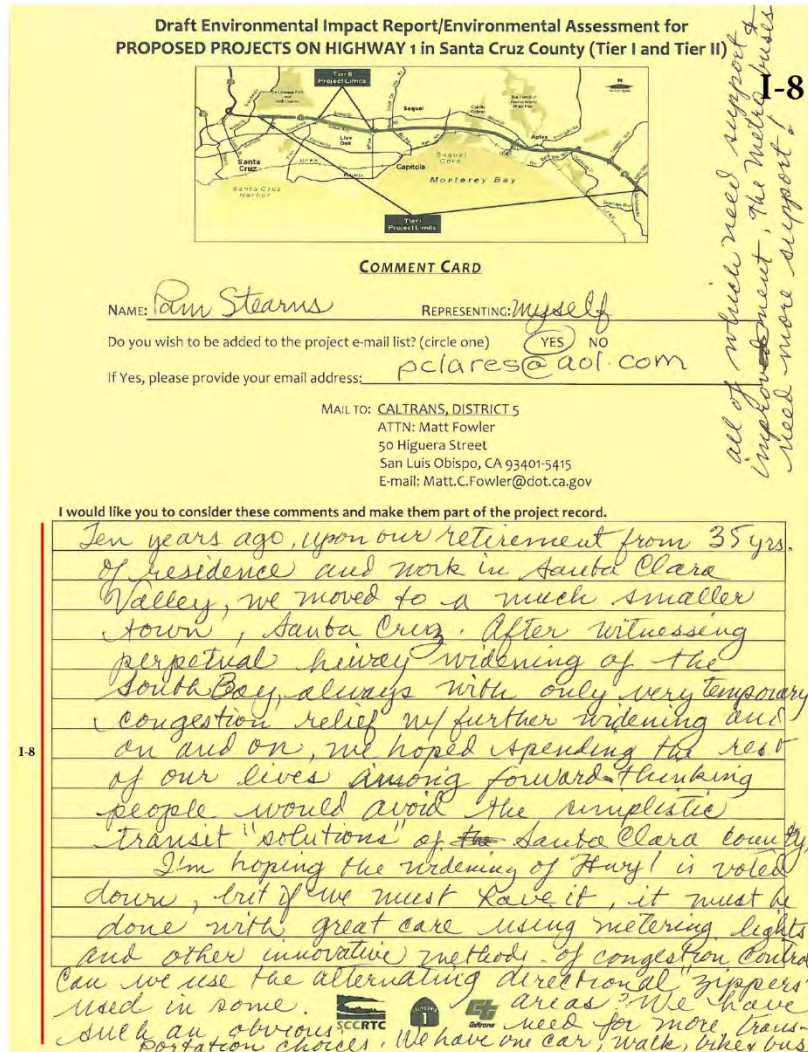 Draft Environmental Impact Report/Environmental Assessment for
PROPOSED PROJECTS ON HIGHWAY 1 in Santa Cruz County (Tier I and Tier II)
I-8
Tier II
Project Limits
N
Soquel
Live
Oak
Aptos
Santa
Cruz
Capitola
Soquel
Cove
Monterey Bay
Santa Cruz
Harbor
Tier I
Project Limits
COMMENT CARD
NAME: Pam Stearns REPRESENTING: Myself
Do you wish to be added to the project e-mail list? (circle one) YES NO
If Yes, please provide your email address: pclares@aol.com
MAIL TO: CALTRANS, DISTRICT 5
ATTN: Matt Fowler
50 Higuera Street
San Luis Obispo, CA 93401-5415
E-mail: Matt.C.Fowler@dot.ca.gov
I would like you to consider these comments and make them part of the project record.
I-8
Ten years ago, upon our retirement from 35 yrs.
of residence and work in Santa Clara
Valley, we moved to a much smaller
town, Santa Cruz. After witnessing
perpetual hiway widening of the
South Bay, always with only very temporary
congestion relief w/ further widening and
on and on, we hoped spending the rest
of our lives among forward-thinking
people would avoid the simplistic
transit "solutions" of the Santa Clara County.
I'm hoping the widening of Hwy 1 is voted
down, but if we must have it, it must be
done with great care using metering lights
and other innovative methods of congestion control
Can we use the alternating directional "zippers"
used in some areas? We have
such an obvious need for more trans-
portation choices. We have one car, walk, bike & bus
SCCRTC
1
Caltrans
all of which need support &
improvement. The Metro buses
need more support!